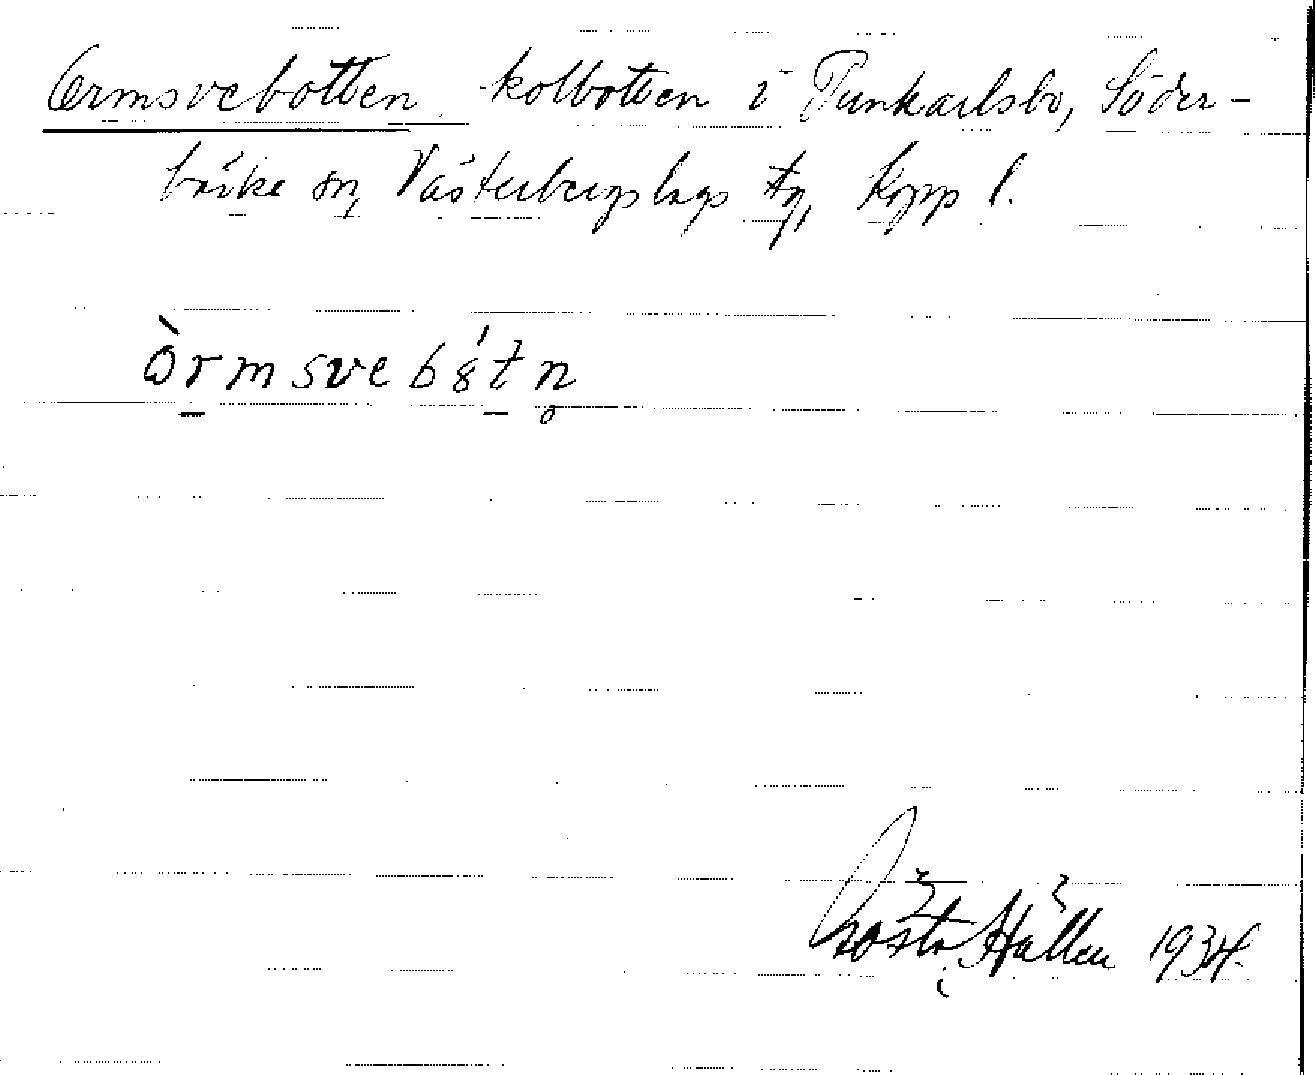 Ormsvebotten kolbotten i Punkarlsbo, Söder-
bärke sn, Västerbergslags tg, Kopp l.
òrmsvebȣ́tn̥
Gösta Hallén 1934.